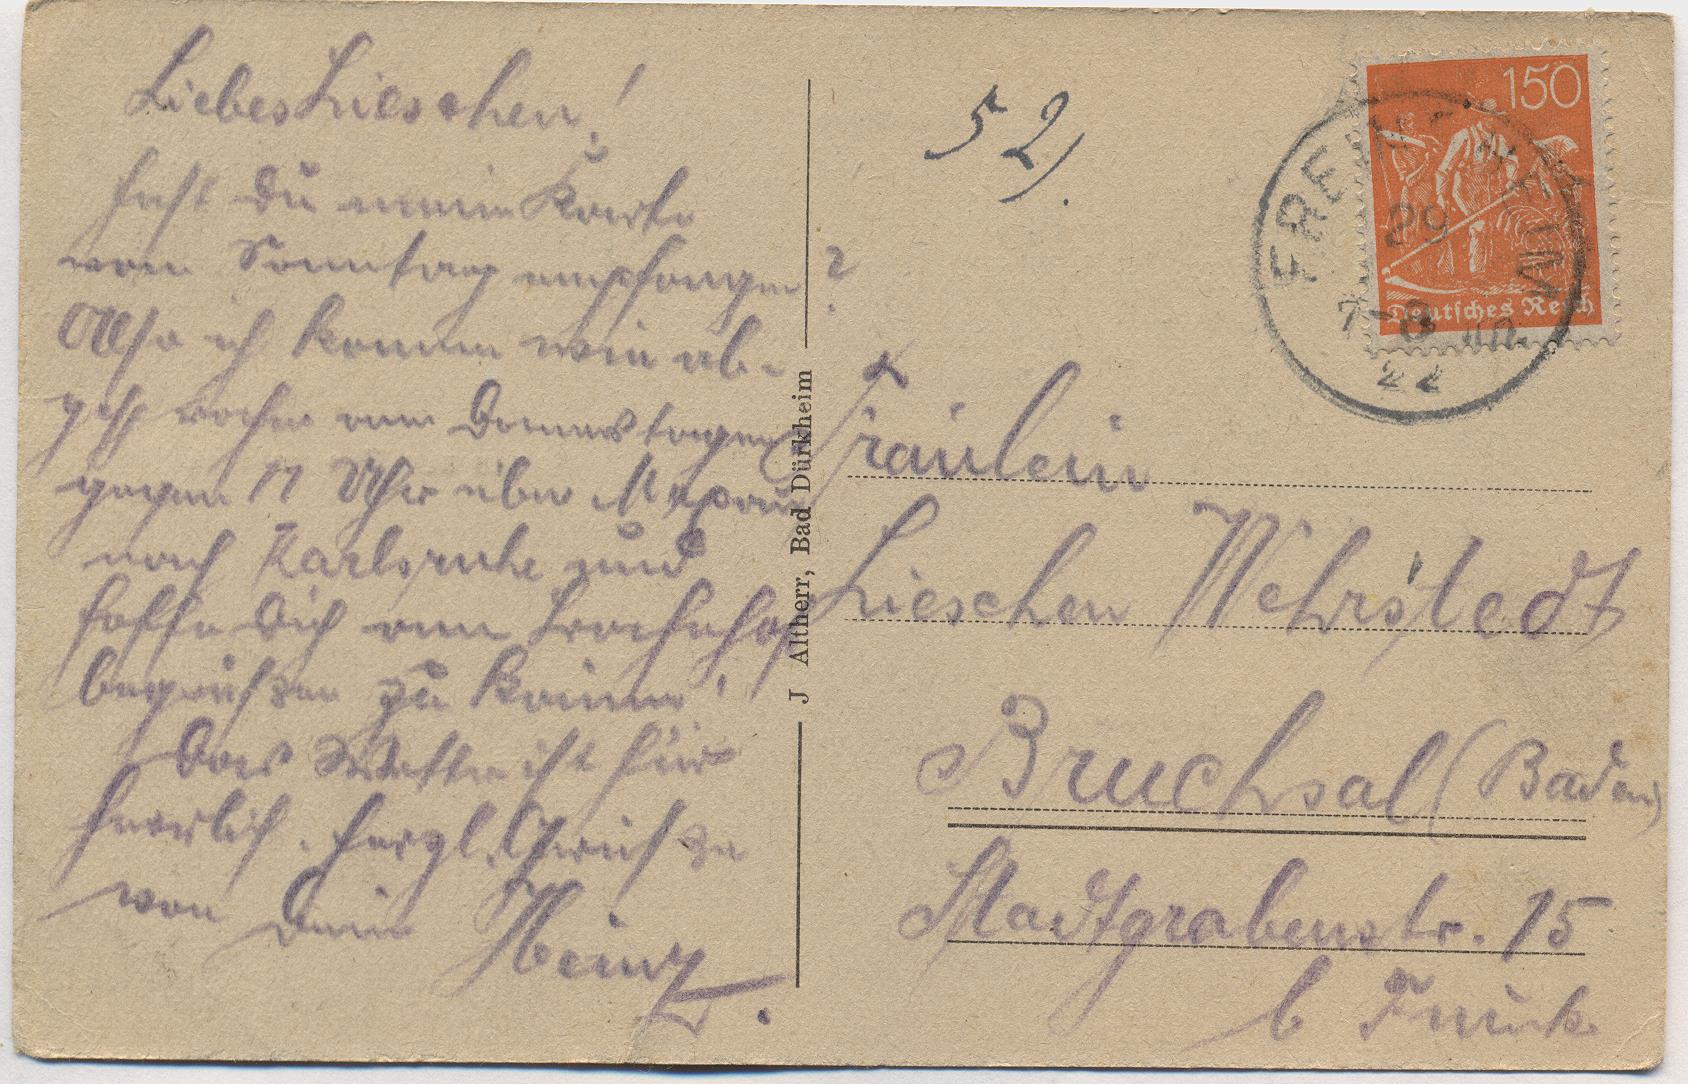 Liebes Lieschen!
Hast Du meine Karte
vom Sonntag empfangen?
Also ich komme wie ab-
gespr
am Donnerstag
gegen 11 Uhr über Maxau
nach Karlsruhe und
hoffe Dich am Bahnhof
begrüßen zu können!
Das Wetter ist hier
herrlich. Herzl. Grüße
von Deinem Heinz
J Altherr, Bad Dürkheim
52).
150
Deutsches Reich
29
7-8
22
Fräulein
Lieschen Wehrstedt
Bruchsal (Baden)
Stadtgrabenstr. 15
b